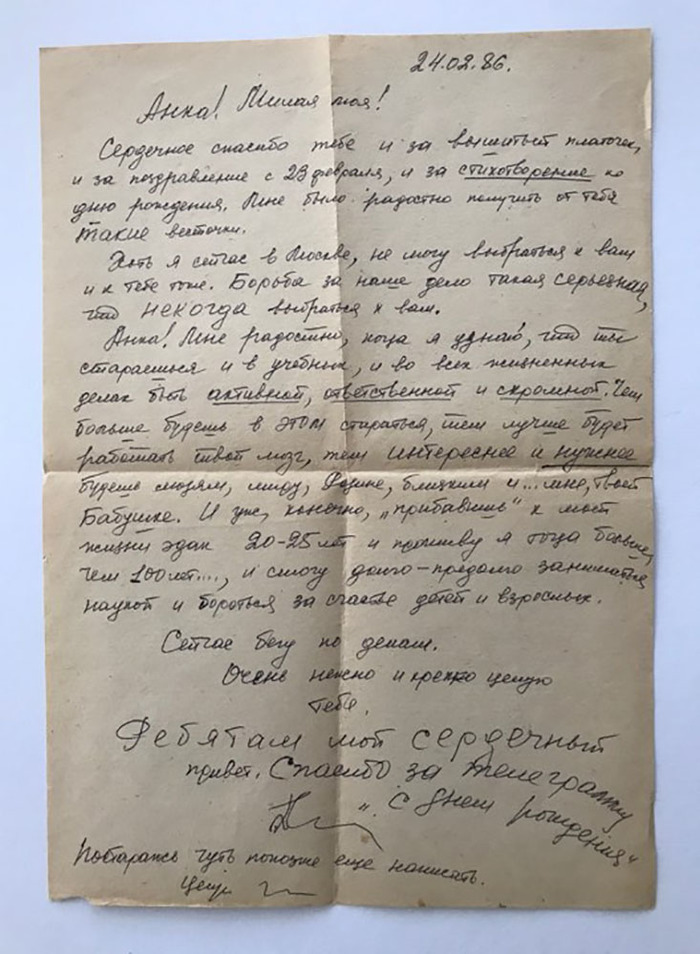 24.02.86.
Анка! Милая моя!
Сердечное спасибо тебе и за вышитый платочек,
и за поздравление с 23 февраля, и за стихотворение ко
дню рождения. Мне было радостно получить от тебя
такие весточки.
Хоть я сейчас в Москве, не могу выбраться к вам
и к тебе тоже. Борьба за наше дело такая серьезная,
что некогда выбраться к вам.
Анка! Мне радостно, когда я узнаю, что ты
стараешься и в учебных, и во всех жизненных
делах быть активной, ответственной и скромной. Чем
больше будешь в этом стараться, тем лучше будет
работать твой мозг, тем интереснее и нужнее
будешь людям, миру, Родине, близким и... мне, твоей
Бабушке. И уж, конечно, „прибавишь" к моей
жизни эдак 20-25 лет и проживу я тогда больше,
чем 100 лет...., и смогу долго-предолго заниматься
наукой и бороться за счастье детей и взрослых.
Сейчас бегу по делам.
Очень нежно и крепко целую
тебя.
Ребятам мой сердечный
привет. Спасибо за телеграмму
„С днем рождения"
Постараюсь чуть попозже еще написать.
Целую